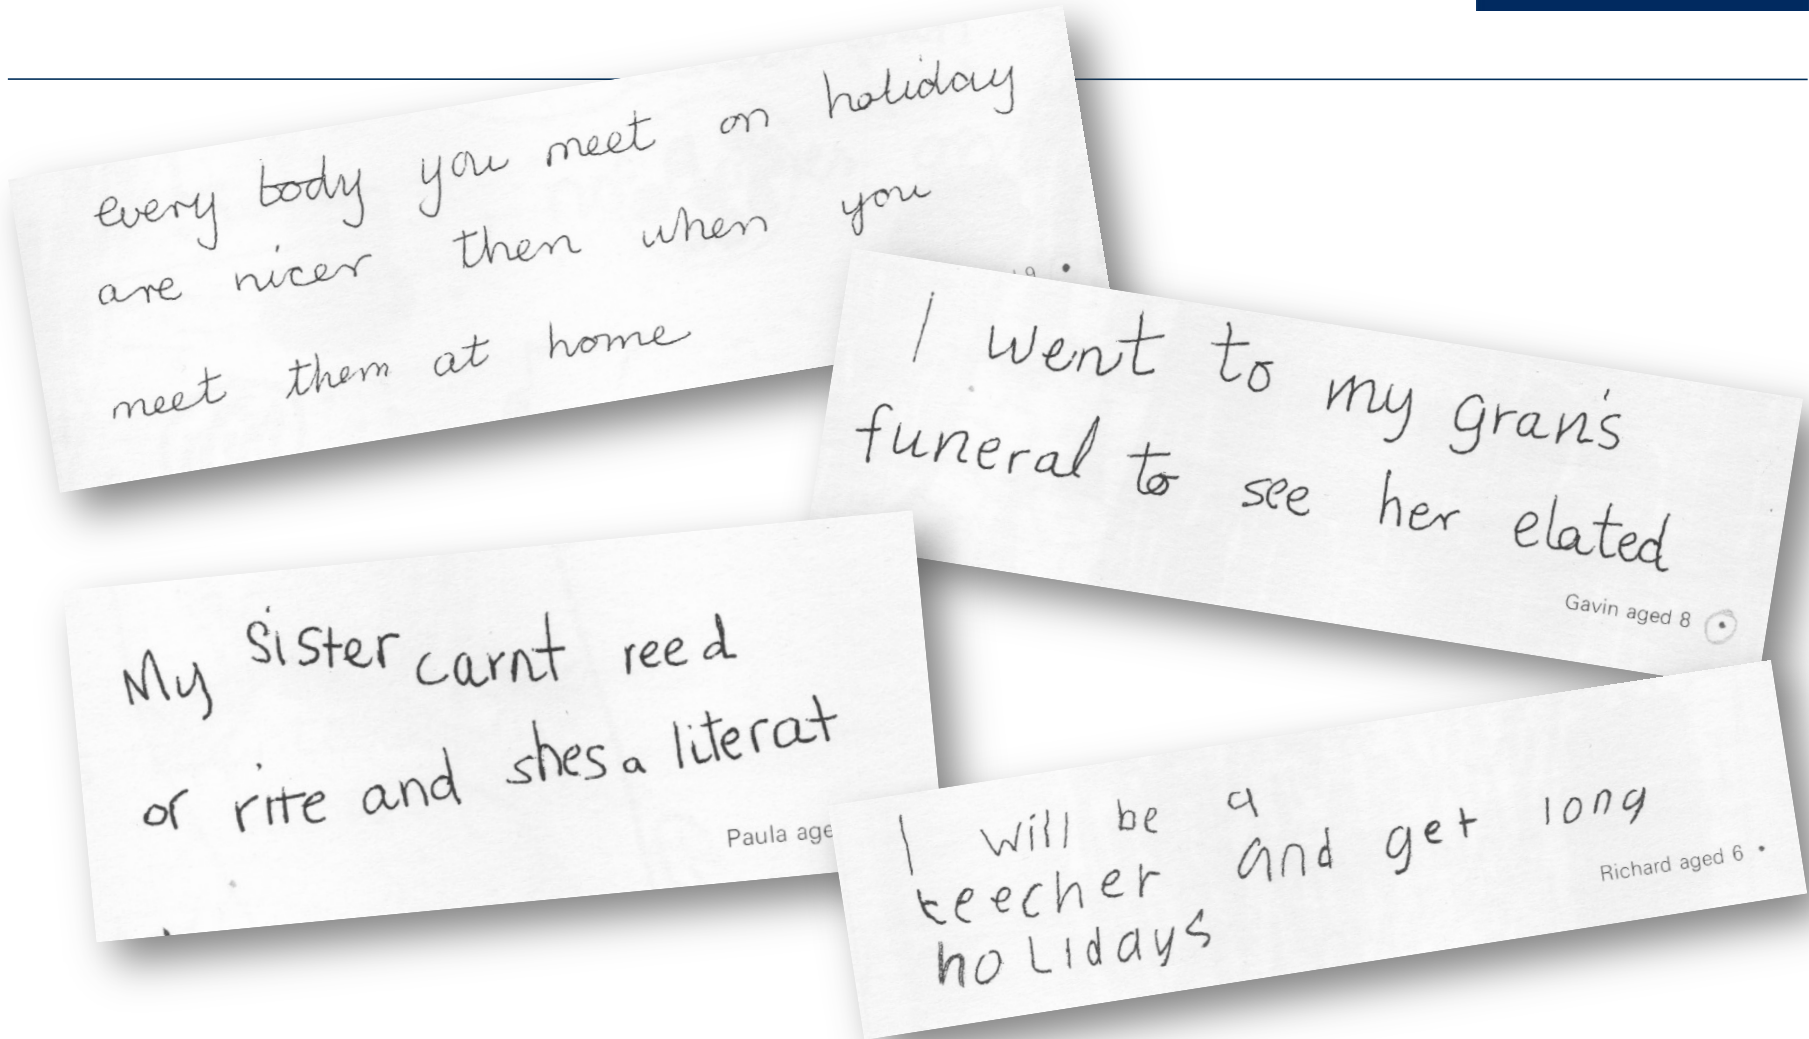 every body you meet on holiday
are nicer then when you
meet them at home
9
I went to my gran's
funeral to see her elated
Gavin aged 8
My sister carnt reed
or rite and shes a literat
Paula age
I will be a
teecher and get long
holidays
Richard aged 6